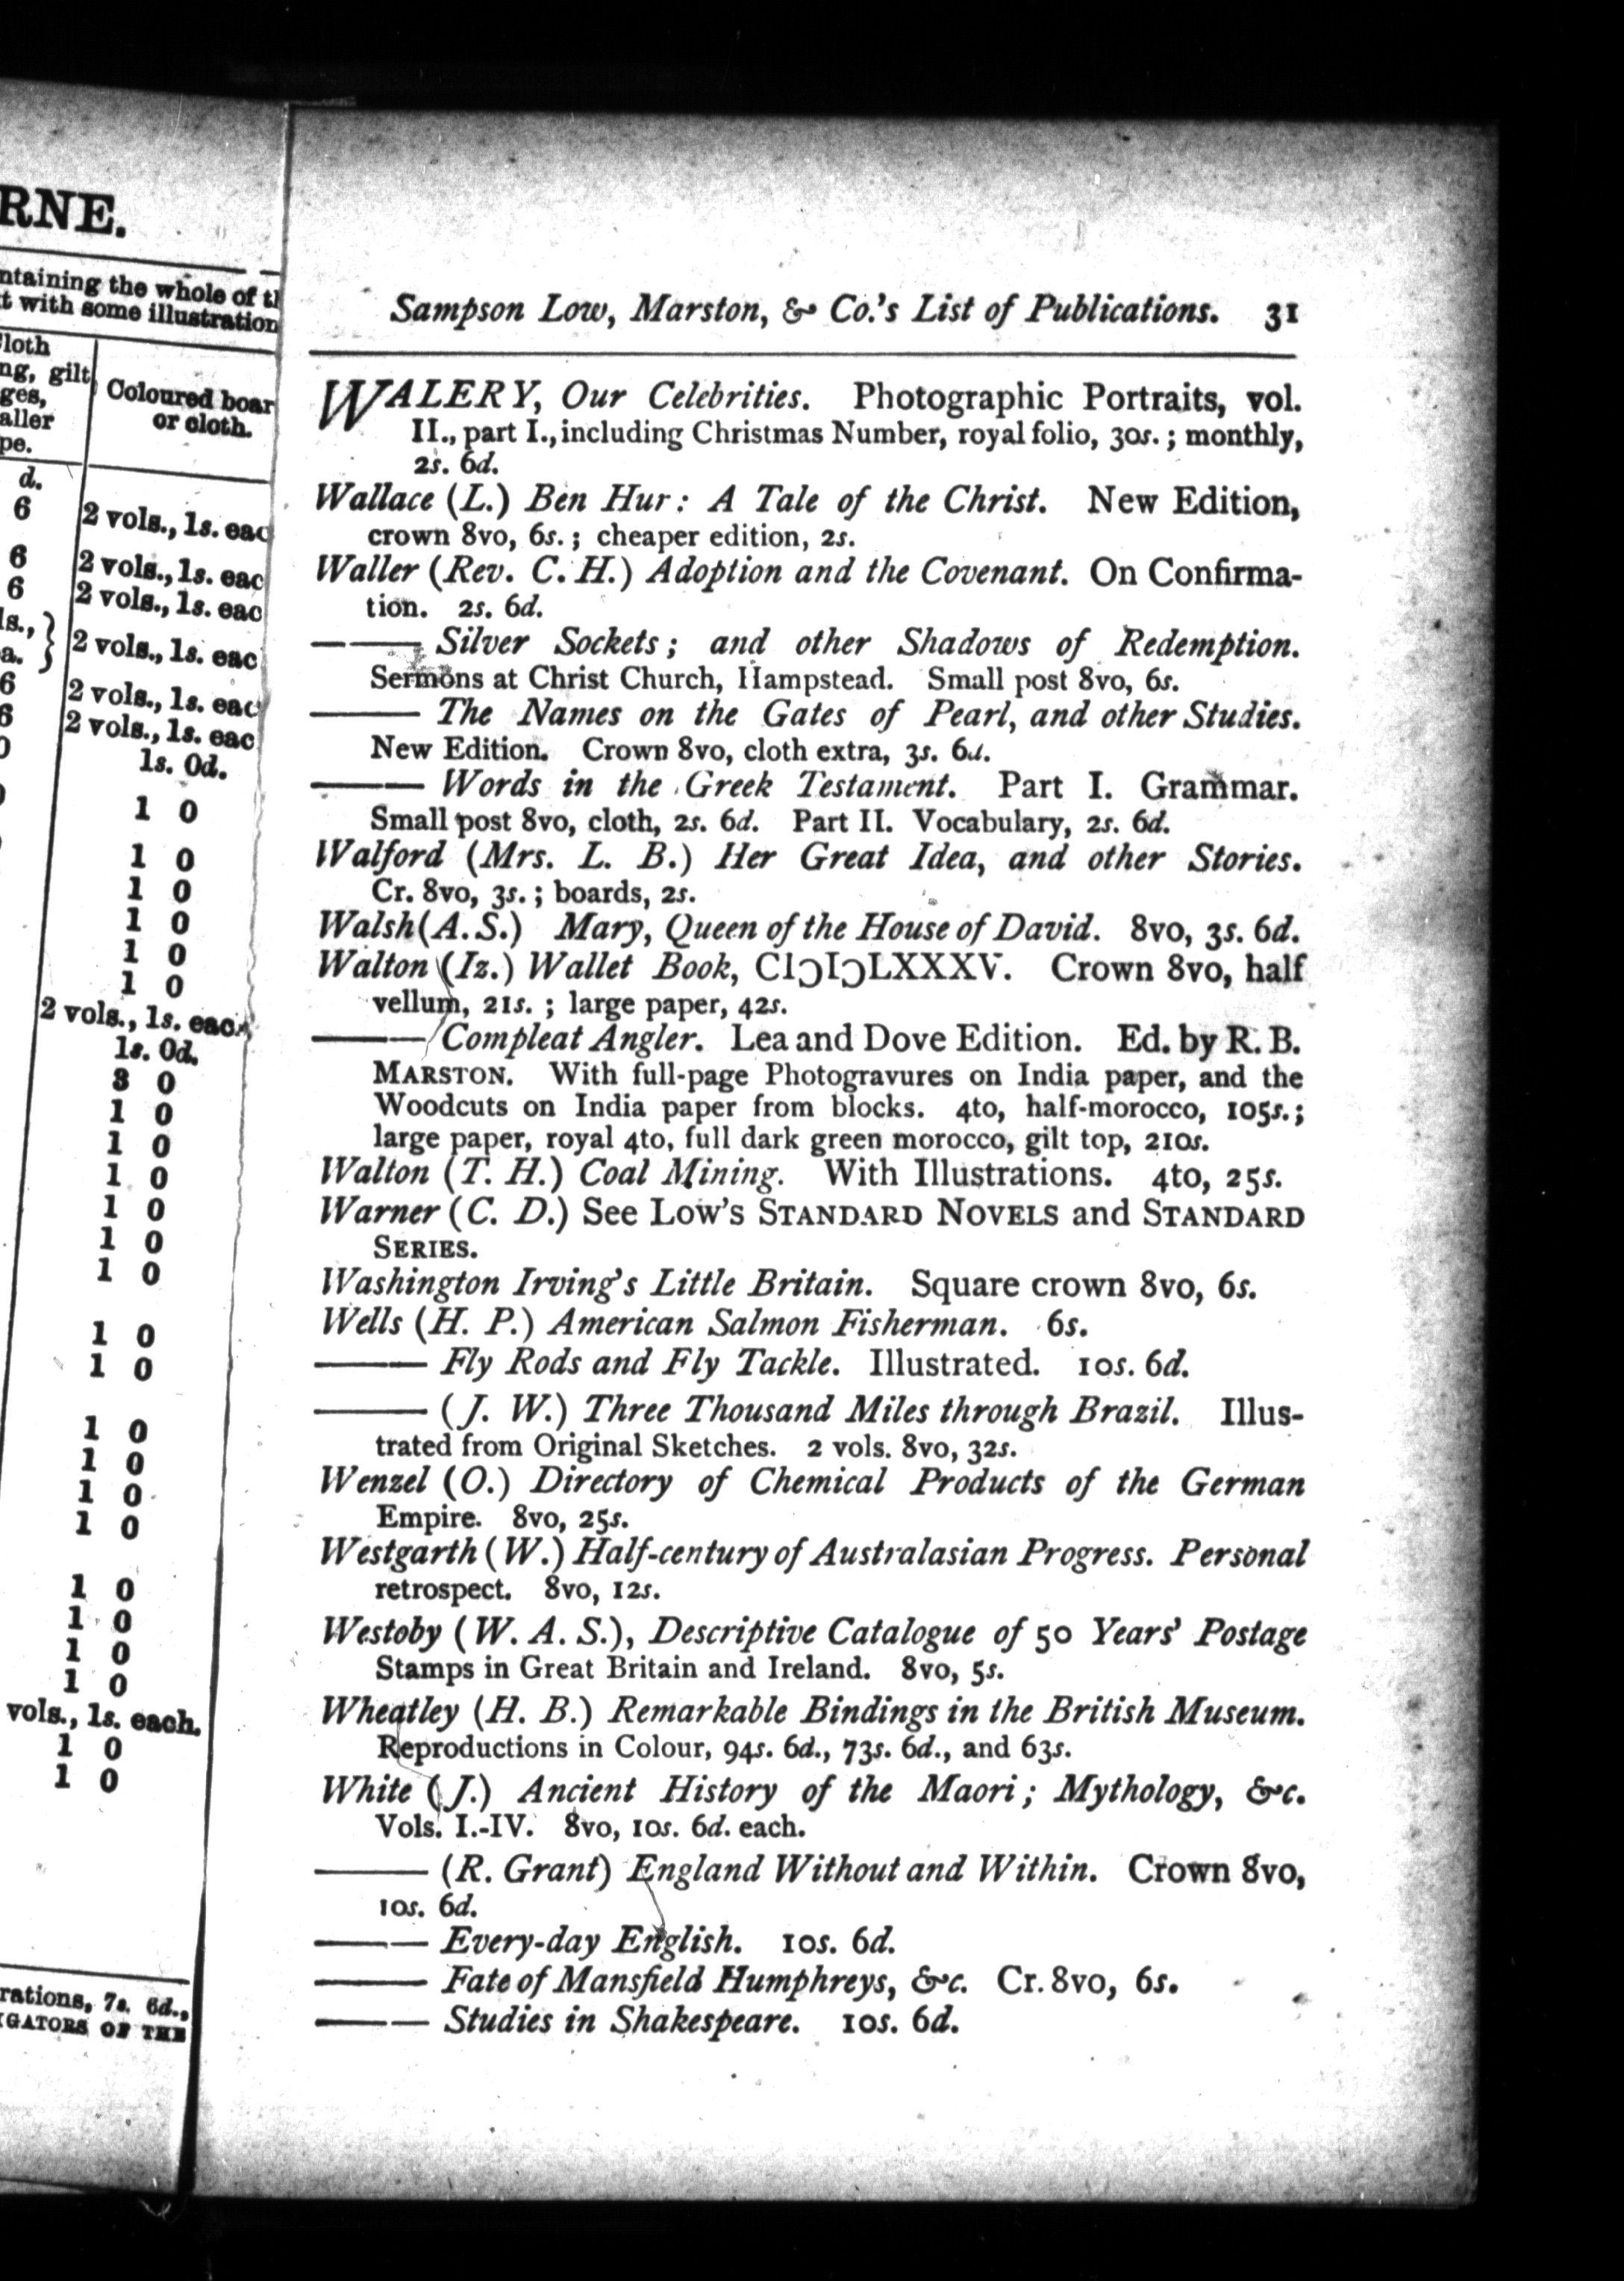 RNE.
ntaining the whole of
t with some illustration
loth
ng, gilt
ges,
aller
pe.
Coloured boar
or cloth.
d.
6 2 vols., 1s. eac
6 2 vols., 1s. eac
6 2 vols., 1s. eac
ls., }
a. } 2 vols., 1s. eac
6 2 vols., 1s. eac
6 2 vols., 1s. eac
1s. 0d.
1 0
1 0
1 0
1 0
1 0
1 0
2 vols., 1s. eac
1s. 0d.
3 0
1 0
1 0
1 0
1 0
1 0
1 0
1 0
1 0
1 0
1 0
1 0
1 0
1 0
1 0
1 0
1 0
vols., 1s. each.
1 0
1 0
rations, 7s. 6d.,
GATORS OF THE
Sampson Low, Marston, & Co.'s List of Publications. 31
WALERY, Our Celebrities. Photographic Portraits, vol.
II., part I., including Christmas Number, royal folio, 30s.; monthly,
2s. 6d.
Wallace (L.) Ben Hur: A Tale of the Christ. New Edition,
crown 8vo, 6s.; cheaper edition, 2s.
Waller (Rev. C. H.) Adoption and the Covenant. On Confirma-
tion. 2s. 6d.
——— Silver Sockets; and other Shadows of Redemption.
Sermons at Christ Church, Hampstead. Small post 8vo, 6s.
——— The Names on the Gates of Pearl, and other Studies.
New Edition. Crown 8vo, cloth extra, 3s. 6d.
——— Words in the Greek Testament. Part I. Grammar.
Small post 8vo, cloth, 2s. 6d. Part II. Vocabulary, 2s. 6d.
Walford (Mrs. L. B.) Her Great Idea, and other Stories.
Cr. 8vo, 3s.; boards, 2s.
Walsh (A.S.) Mary, Queen of the House of David. 8vo, 3s. 6d.
Walton (Iz.) Wallet Book, CIƆIƆLXXXV. Crown 8vo, half
vellum, 21s.; large paper, 42s.
——— Compleat Angler. Lea and Dove Edition. Ed. by R. B.
MARSTON. With full-page Photogravures on India paper, and the
Woodcuts on India paper from blocks. 4to, half-morocco, 105s.;
large paper, royal 4to, full dark green morocco, gilt top, 210s.
Walton (T. H.) Coal Mining. With Illustrations. 4to, 25s.
Warner (C. D.) See Low's STANDARD NOVELS and STANDARD
SERIES.
Washington Irving's Little Britain. Square crown 8vo, 6s.
Wells (H. P.) American Salmon Fisherman. 6s.
——— Fly Rods and Fly Tackle. Illustrated. 10s. 6d.
——— (J. W.) Three Thousand Miles through Brazil. Illus-
trated from Original Sketches. 2 vols. 8vo, 32s.
Wenzel (O.) Directory of Chemical Products of the German
Empire. 8vo, 25s.
Westgarth (W.) Half-century of Australasian Progress. Personal
retrospect. 8vo, 12s.
Westoby (W. A. S.), Descriptive Catalogue of 50 Years' Postage
Stamps in Great Britain and Ireland. 8vo, 5s.
Wheatley (H. B.) Remarkable Bindings in the British Museum.
Reproductions in Colour, 94s. 6d., 73s. 6d., and 63s.
White (J.) Ancient History of the Maori; Mythology, &c.
Vols. I.-IV. 8vo, 10s. 6d. each.
——— (R. Grant) England Without and Within. Crown 8vo,
10s. 6d.
——— Every-day English. 10s. 6d.
——— Fate of Mansfield Humphreys, &c. Cr. 8vo, 6s.
——— Studies in Shakespeare. 10s. 6d.